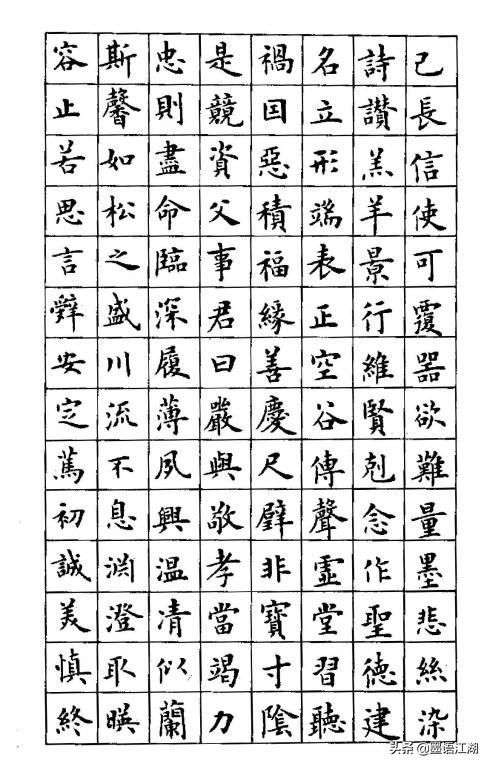 己長信使可覆器欲難量墨悲絲染
詩讚羔羊景行維賢剋念作聖德建
名立形端表正空谷傳聲虛堂習聽
禍因惡積福緣善慶尺璧非寶寸陰
是競資父事君曰嚴與敬孝當竭力
忠則盡命臨深履薄夙興温清似蘭
斯馨如松之盛川流不息渊澄取暎
容止若思言辭安定篤初誠美慎終
头条 @墨语江湖